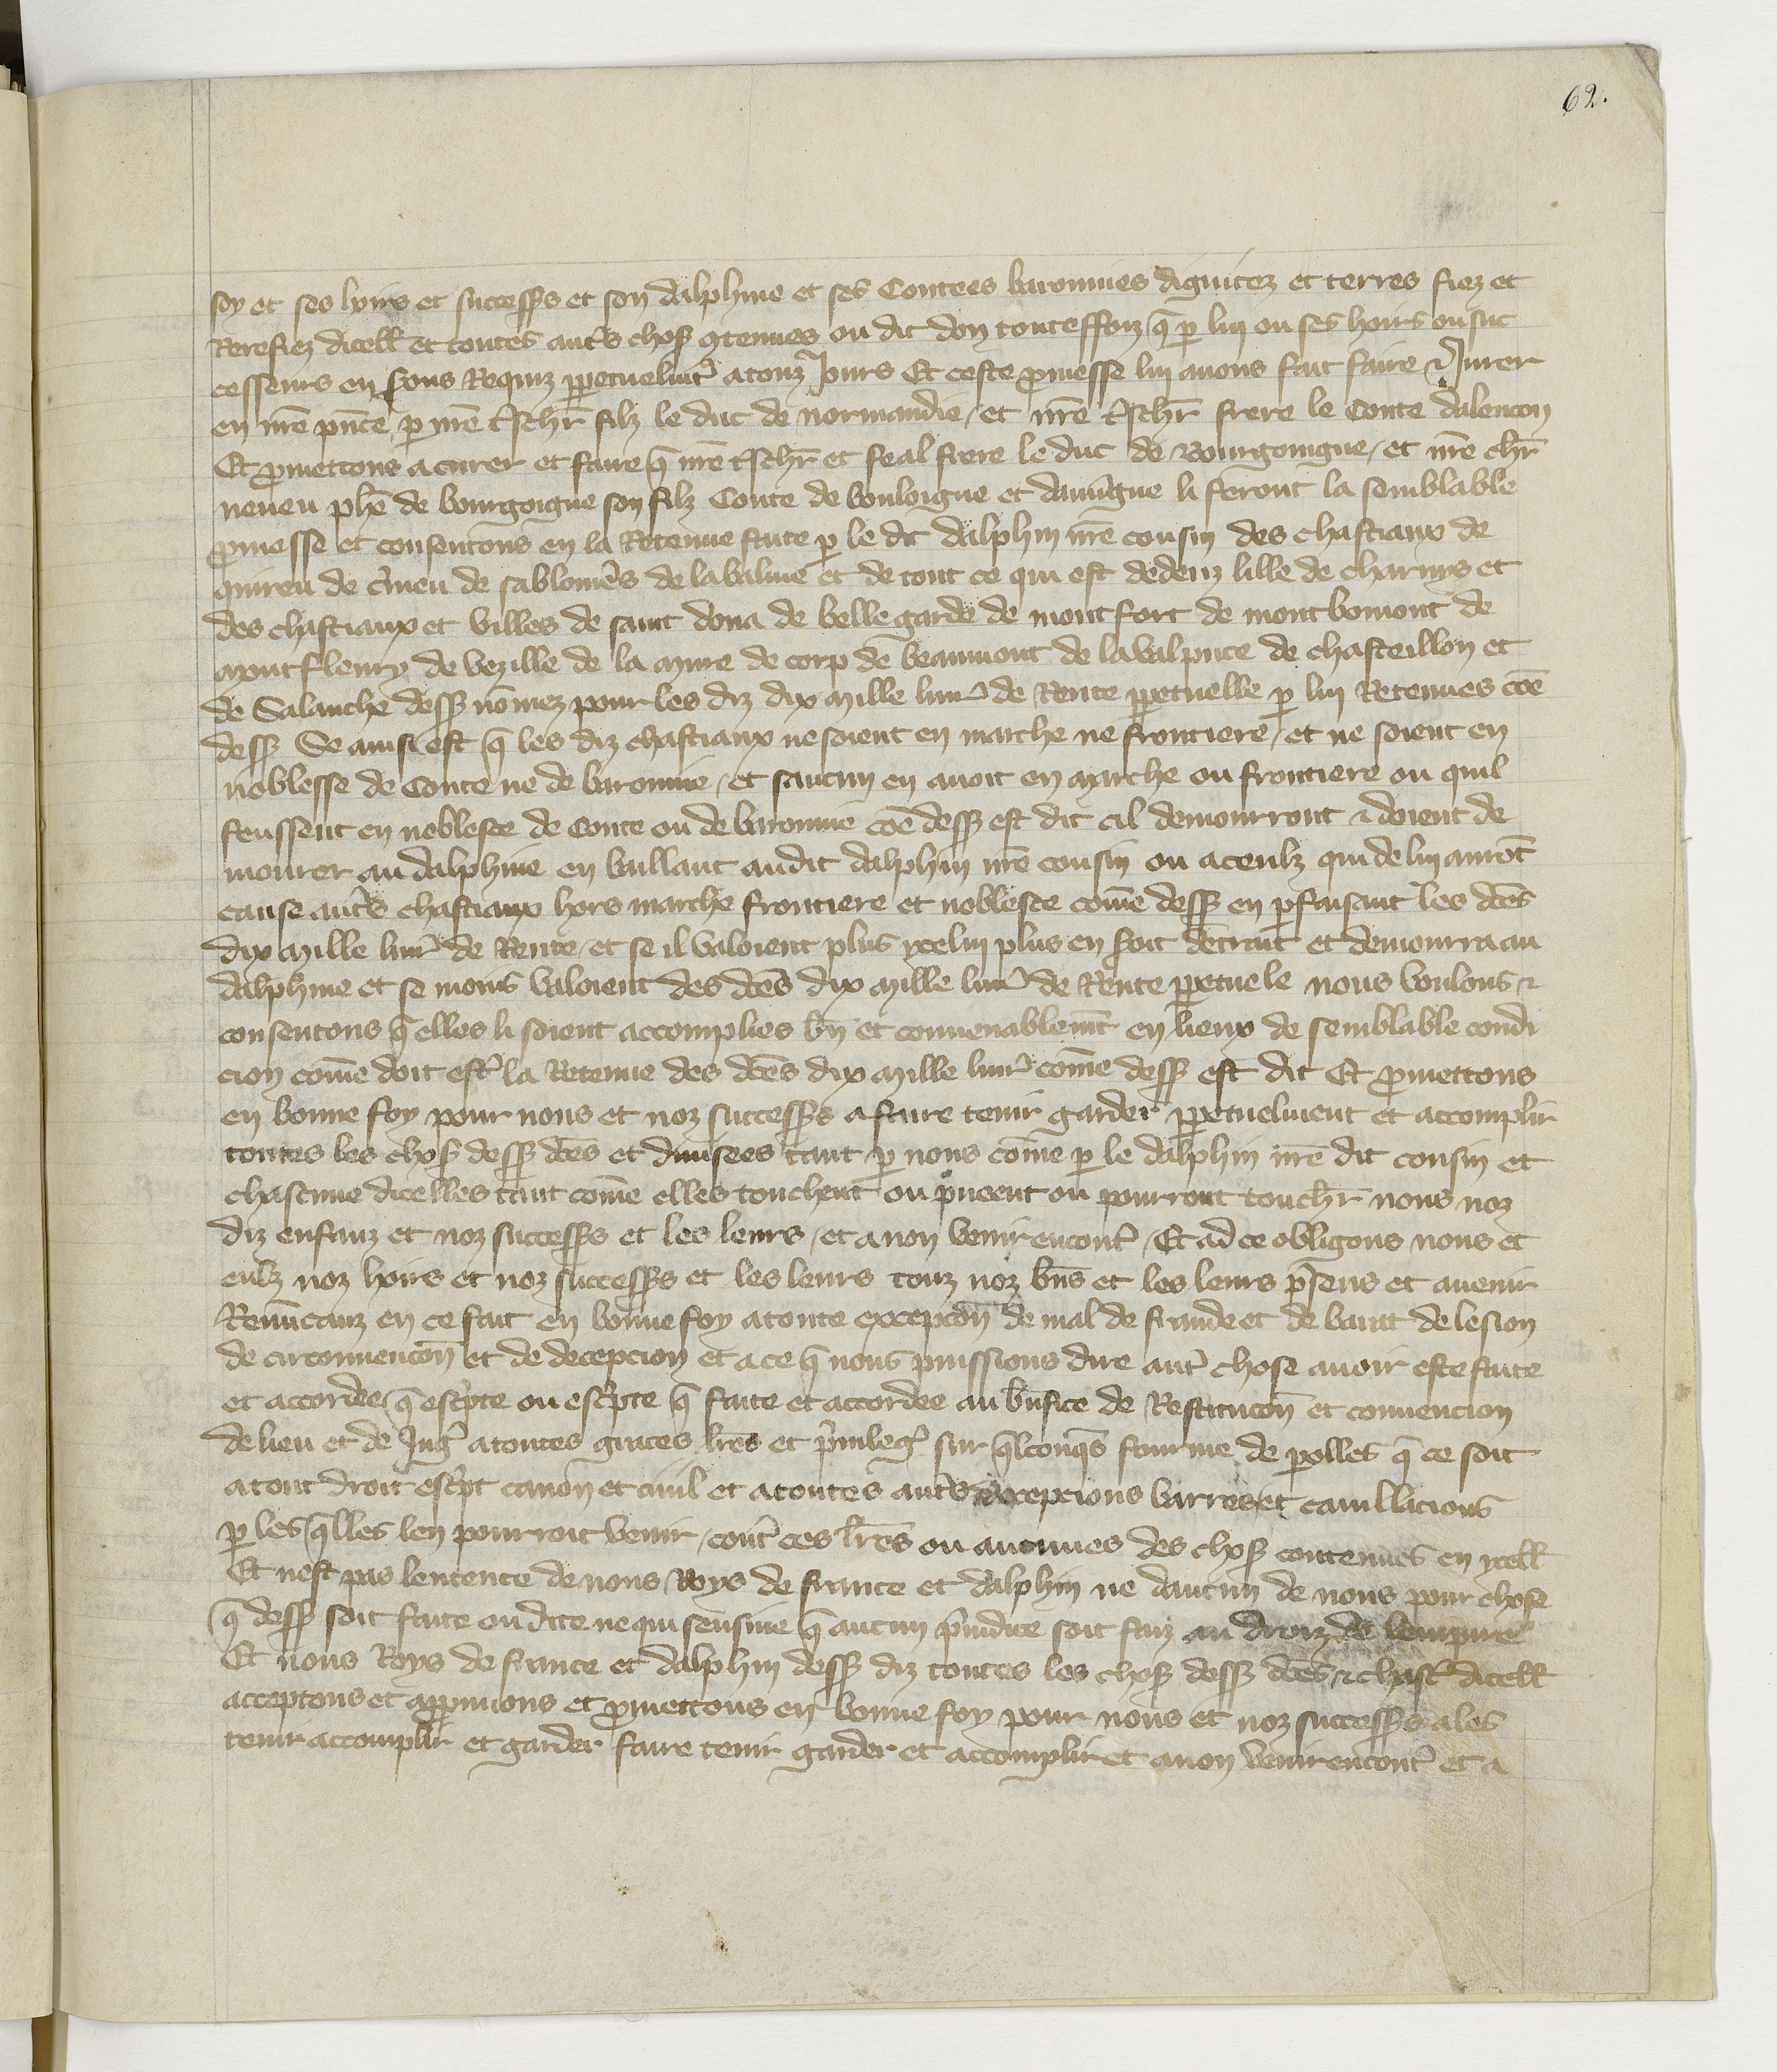 62.
soy et ses hoirs et successrs et son dalphine et ses Contees baronnies dignitez et terres fiez et
Rerefiez dicell et toutes autrs chosꝭ ꝯtenues ou dit don touteffoiz q̄ ꝑ lui ou ses hoirs ou suc
cesseurs en sons Requiz ꝑpetuelmt atouz Jours Et ceste ꝓmesse lui auons fait faire ⁊ Jurer
en nr̄e pn̄ce ꝑ nr̄e tschr̄ filz le duc de normandie / et nr̄e tschr̄ frere le Conte dalencon
Et ꝓmettons acurer et faire q̄ nr̄e tschr̄ et feal frere le duc de Bourgoingne / et nr̄e chr̄
neueu phē de bourgoigne son filz Conte de bouloigne et dauuigne li feront la semblable
ꝓmesse et consentons en la Retenue faite ꝑ le dit dalphin nr̄e cousin des chastiaux de
quireu de c̄mieu de sablonn̄es de labalme et de tout ce qui est dedenz lille de charuys et
des chastiaux et villes de saint dona de belle garde de mont fort de mont bomont de
montfleury de vezille de la mure de corp de beaumont de laValpute de chasteillon et
de Salanche dessꝭ nōmez pour les diz dix mille liur̄ de Rente ꝑpetuelle ꝑ lui Retenues cōe
dessꝭ Se ainsi est q̄ les diz chastiaux ne soient en marche ne frontiere / et ne soient en
noblesse de Conte ne de baronnie / et saucun en auoit en marche ou frontiere ou quil
feussent en noblesce de Conte ou de baronnie cōe dessꝭ est dit cil demourront ⁊ doient de
mourer au dalphine en baillant audit dalphin nr̄e cousin ou aceulz qui de lui aurōt
cause autrs chastiaux hors marche frontiere et noblesce comē dessꝭ en ꝑfaisant les dc̄es
dix mille liur̄ de Rente / et se il valoient plus ycelui plus en soit detrait et demourra au
dalphine et se moins valoient des dc̄es dix mille liur̄ de Rente ꝑpetuele nous voulons ⁊
consentons q̄ elles li soient accomplies bn̄ et conuenablemt en lieux de semblable condi
cion comē doit estr̄ la Retenue des dc̄es dix mille liur̄ comē dessꝭ est dit Et ꝓmettons
en bonne foy pour nous et noz successrs afaire tenir garder ꝑpetuelment et accomplir
toutes les chosꝭ dessꝭ dc̄es et diuisees tant ꝑ nous comē ꝑ le dalphin nr̄e dit cousin et
chascune dicelles tant comē elles touchent ou pueent ou pourront touchr̄ nous noz
diz enfanz et noz successrs et les leurs / et anon venir encontr̄ / Et ad ce obligons nous et
eulz noz hoirs et noz successrs et les leurs touz noz bn̄s et les leurs p̄sens et auenir
Renūcanz en ce fait en bonne foy atoute excepcōn de mal de fraude et de barat de lesion
de circonuencōn et de decepcion et ace q̄ nous puissions dire autr̄ chose auoir este faite
et accordee q̄ esc̄pte ou esc̄pte q̄ faite et accordee au bn̄fice de Restitucōn et conuencion
de lieu et de Jugr̄ atoutes graces lr̄es et p̄uilegr̄ sur q̄lconqs̄ fourme de ꝑolles q̄ ce soit
atout droit esc̄pt canon et ciuil et atoutes autrs excepcions barres et cauillacions
ꝑ les q̄lles len pourroit venir / contr̄ ces lr̄es ou aucunes des chosꝭ contenues en ycell
Et nest pas lentente de nous Roys de france et dalphin ne daucun de nous pour chose
q̄ dessꝭ soit faite ou dite ne qui sensiue q̄ aucun p̄iudice soit faiz au droiz de lempire
Et nous Roys de france et dalphin dessꝭ diz toutes les chosꝭ dessꝭ dc̄es ⁊ chascr̄ dicell
acceptons et appuuons et ꝓmettons en bonne foy pour nous et noz successrs ales
tenir accomplir et garder faire tenir garder et accomplir et anon venir encontr̄ et a